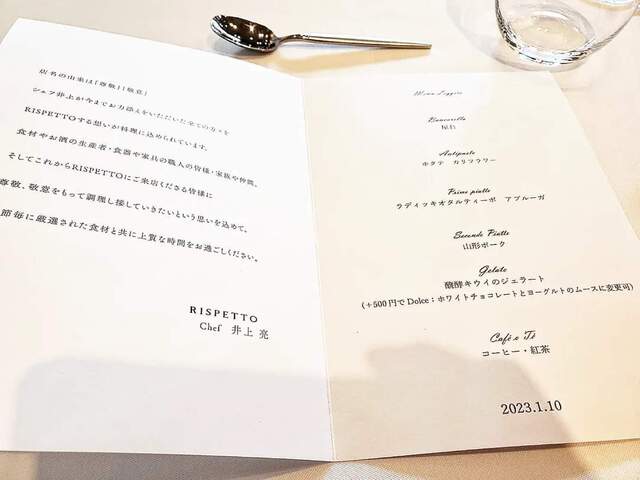 店名の由来は「尊敬」「敬意」
シェフ井上が今までお力添えをいただいた全ての方々を
RISPETTOする想いが料理に込められています。
食材やお酒の生産者・食器や家具の職人の皆様・家族や仲間。
そしてこれからRISPETTOにご来店くださる皆様に
尊敬、敬意をもって調理し接していきたいという思いを込めて。
節毎に厳選された食材と共に上質な時間をお過ごしください。
RISPETTO
Chef 井上 亮
Menu Leggero
Antipasto
ホタテ カリフラワー
Primo piatto
ラディッキオタルティーボ アフルーガ
Secondo Piatto
山形ポーク
Gelato
醗酵キウイのジェラート
(+500円でDolce:ホワイトチョコレートとヨーグルトのムースに変更可)
Café e Té
コーヒー・紅茶
2023.1.10